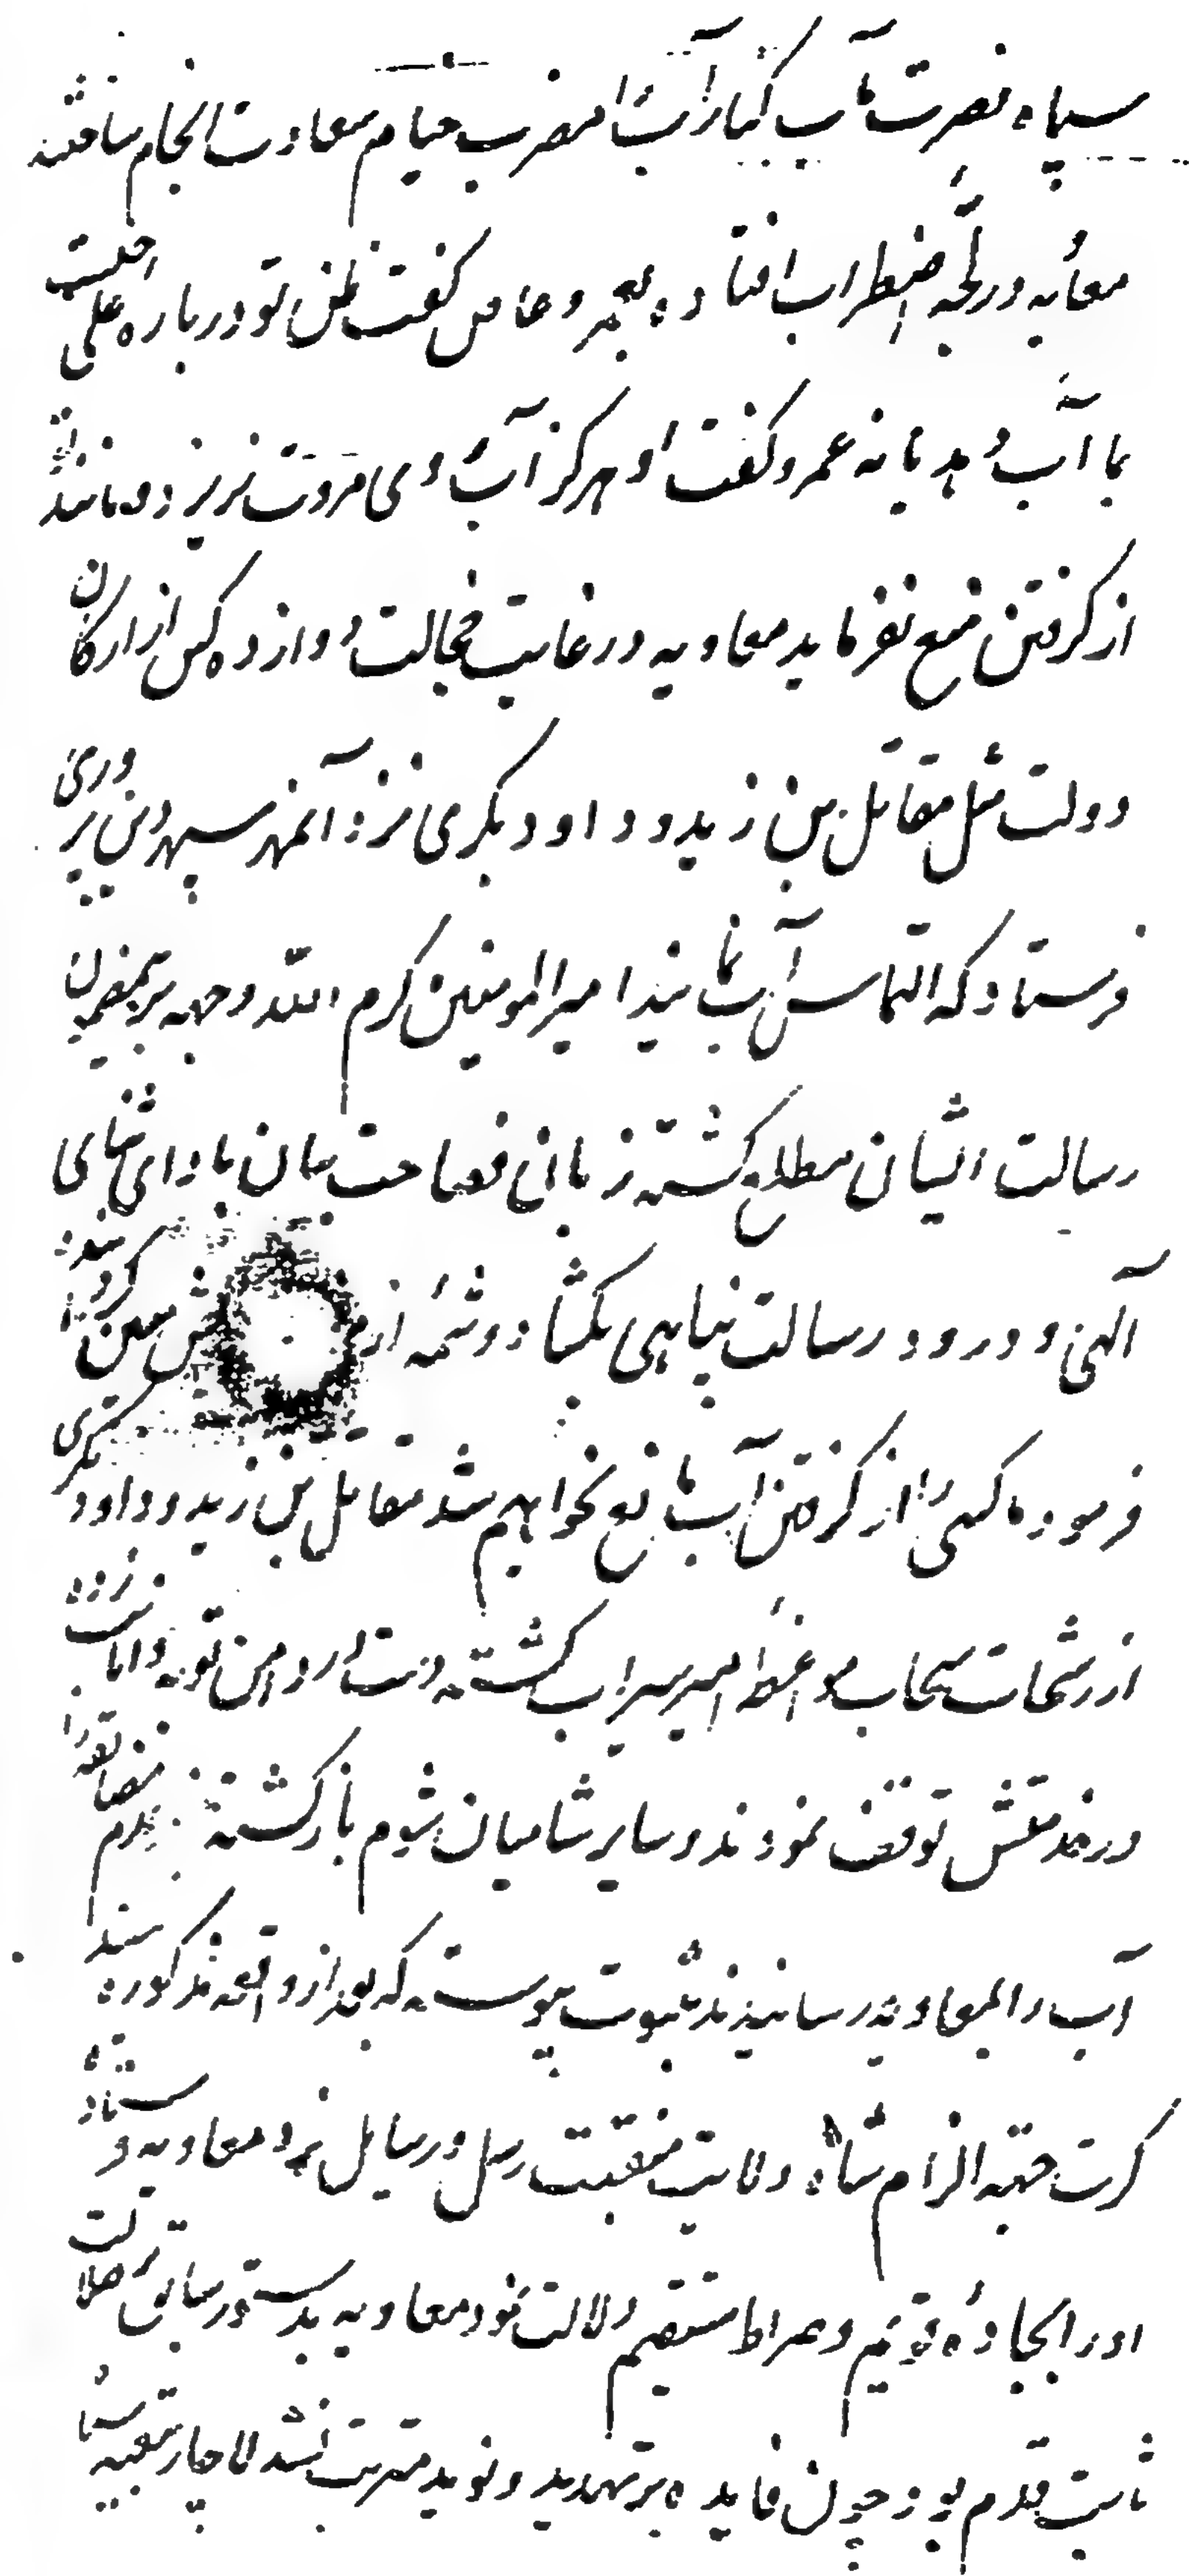 سپاه نصرت مآب کنار آب را مضرب خیام سعادت انجام ساختند
معویه در لجه اضطراب افتاده بعمرو عاص گفت ظن تو درباره علی چیست
بما آب دهد یا نه عمرو گفت او هرگز آب روی مروت نریزد و مانند تو
از گرفتن منع نفرماید معاویه در غایت خجالت دوازده کس از ارکان
دولت مثل مقاتل بن زید و داود بکری نزد آنمهر سپهر دین پروری
فرستاد که التماس آب نمایند امیرالمومنین کرم الله وجهه بر مضمون
رسالت ایشان مطلع گشته زبانی فصاحت بیان بادای ثنای
الهی و درود رسالت پناهی بگشاد و شمه از شش معین گردانید
فرمود ما کسی را از گرفتن آب مانع نخواهیم شد مقاتل بن زید و داود بکری
از رشحات سحاب مواعظ امیر سیراب گشته دست در دامن توبه و انابت زده
در خدمتش توقف نمودند و سایر شامیان شوم بازگشته عدم مضایقه را
آب را بمعاویه رسانیدند بثبوت پیوسته که بعد از واقعه مذکوره سند
کرت جهة الزام شاه ولایت منقبت رسل و رسایل نزد معاویه فرستاد تا
او را بجاده قویم و صراط مستقیم دلالت نمود معاویه بدستور سابق بر ضلالت
ثابت قدم بود چون فایده بر تهدید و نوید مترتب نشد لاچار بتعبیه سپاه